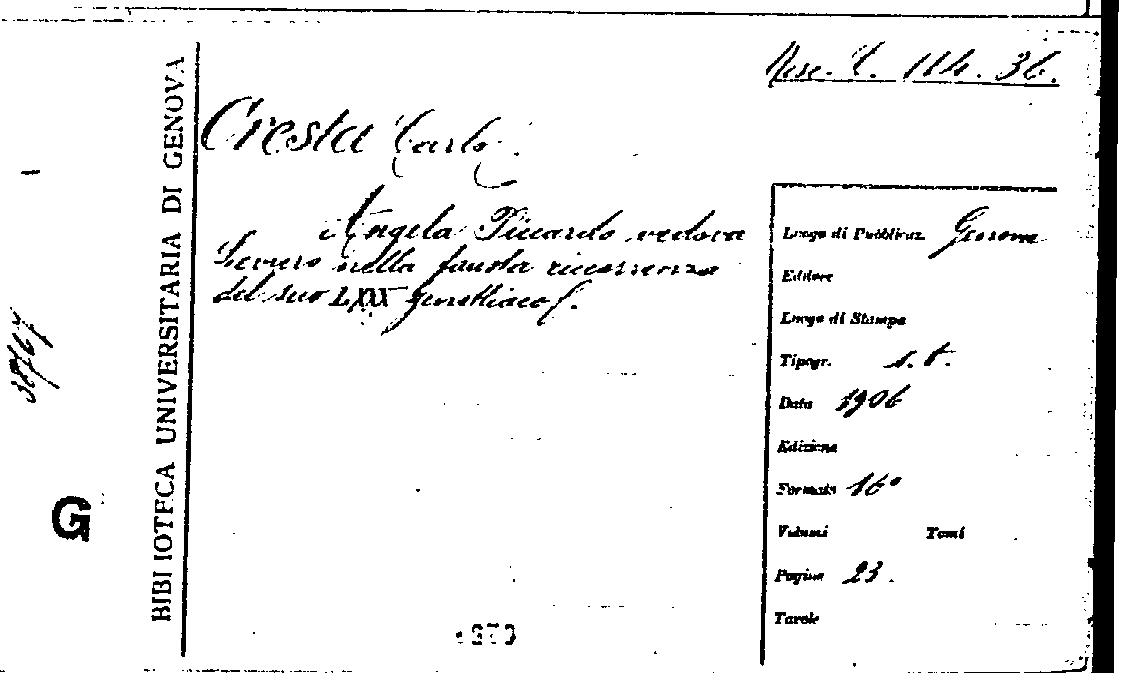 Misc. L. 114. 36.
BIBLIOTECA UNIVERSITARIA DI GENOVA
Cresta Carlo.
Angela Piccardo vedova
nella fausta ricorrenza
del suo LXXX genetliaco
Luogo di Pubblicaz. Genova
Editore
Luogo di Stampa
Tipogr. s. t.
Data 1906
Edizione
Formato 16°
Volumi Tomi
Pagine 23.
Tavole
G